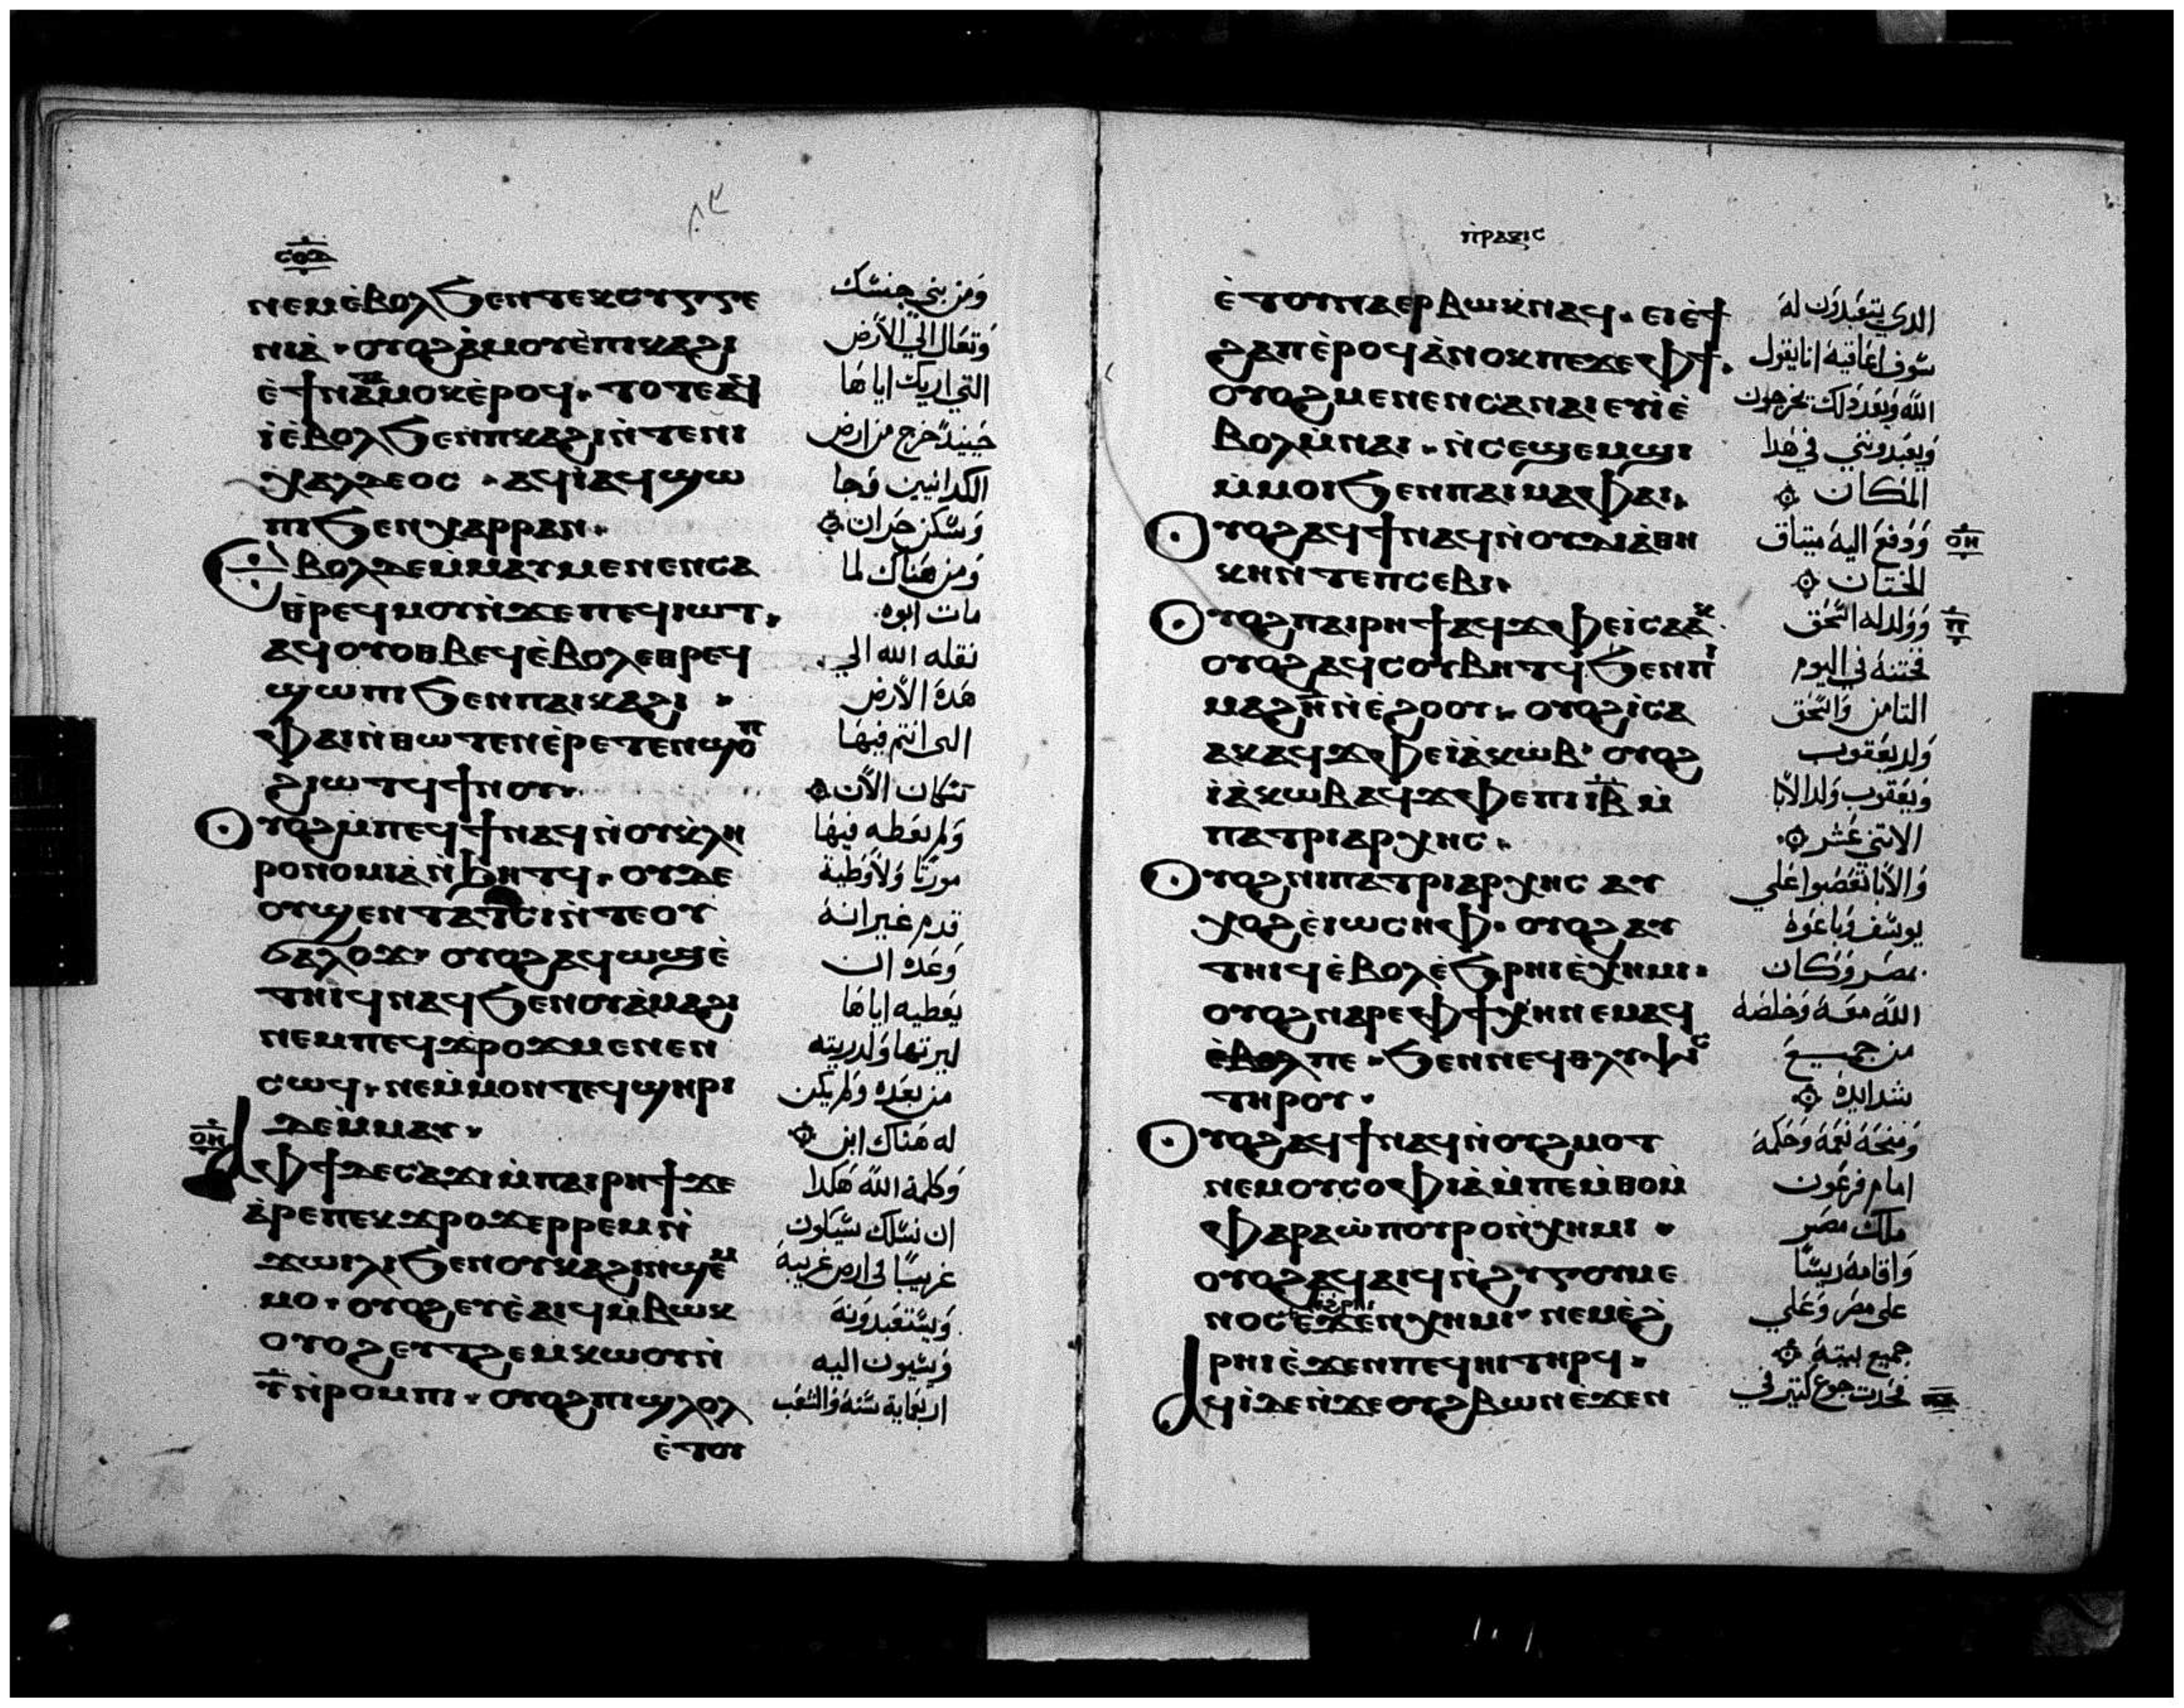 ⲥⲟⲇ
ⲛⲉⲙⲉ̀ⲃⲟⲗϧⲉⲛⲧⲉⲕⲥⲩⲅⲅⲉ
ⲛⲓⲁ̀ ⲟⲩⲟϩⲁ̀ⲙⲟⲩⲉ̀ⲡⲓⲕⲁϩⲓ
ⲉ̀ϯⲛⲁⲧⲁⲙⲟⲕⲉ̀ⲣⲟϥ ⲧⲟⲧⲉⲁϥ
ⲓ̀ⲉ̀ⲃⲟⲗϧⲉⲛⲡⲕⲁϩⲓⲛ̀ⲧⲉⲛⲓ
ⲭⲁⲗⲇⲉⲟⲥ ⲁϥⲓ̀ⲁϥϣⲱ
ⲡⲓϧⲉⲛⲭⲁⲣⲣⲁⲛ
ⲉⲃⲟⲗⲇⲉⲙ̀ⲙⲁⲩⲙⲉⲛⲉⲛⲥⲁ
ⲑⲣⲉϥⲙⲟⲩⲛ̀ϫⲉⲡⲉϥⲓⲱⲧ
ⲁϥⲟⲩⲟⲑⲃⲉϥⲉ̀ⲃⲟⲗⲉⲑⲣⲉϥ
ϣⲱⲡⲓϧⲉⲛⲡⲁⲓⲕⲁϩⲓ
ⲫⲁⲓⲛ̀ⲑⲱⲧⲉⲛⲉ̀ⲣⲉⲧⲉⲛϣⲟⲡ
ϩⲓⲱⲧϥϯⲛⲟⲩ
ⲟⲩⲟϩⲙ̀ⲡⲉϥϯⲛⲁϥⲛ̀ⲟⲩⲕ̀ⲗⲏ
ⲣⲟⲛⲟⲙⲓⲁ̀ⲛ̀ϧⲏⲧϥ ⲟⲩⲇⲉ
ⲟⲩϣⲉⲛⲧⲁⲧⲥⲓⲛ̀ⲧⲉⲟⲩ
ϭⲁⲗⲟϫ ⲟⲩⲟϩⲁϥⲱϣⲉ̀
ⲧⲏⲓϥⲛⲁϥϧⲉⲛⲟⲩⲁ̀ⲙⲁϩⲓ
ⲛⲉⲙⲡⲉϥϫⲣⲟϫⲙⲉⲛⲉⲛ
ⲥⲱϥ ⲛⲉⲙ̀ⲙⲟⲛⲧⲉϥϣⲏⲣⲓ
ⲇⲉⲙ̀ⲙⲁⲩ
ⲁⲫϯⲇⲉⲥⲁϫⲓⲙ̀ⲡⲁⲓⲣⲏϯϫⲉ
ⲁ̀ⲣⲉⲡⲉⲕϫⲣⲟϫⲉⲣⲣⲉⲙⲛ̀
ϫⲱⲓⲗⲓϧⲉⲛⲟⲩⲕⲁϩⲓⲛ̀ϣⲉⲙ
ⲙⲟ ⲟⲩⲟϩⲉⲩⲉ̀ⲁⲓϥⲙ̀ⲃⲱⲕ
ⲟⲩⲟϩⲉⲩⲧϩⲉⲙⲕⲱⲟⲩⲛ̀
ⲩ̅ⲛ̀ⲣⲟⲙⲡⲓ ⲟⲩⲟϩⲡⲓϣⲗⲟⲗ
ⲉ̀ⲧⲟⲩ
ومن بني جنسك
وتعال الي الارض
التي اريك اياها
حينيد خرج من ارض
الكلدانيين فجا
وسكن حران
ومن هناك لما
مات ابوه
نقله الله الي
هده الارض
التي انتم فيها
سكان الان
ولم يعطه فيها
مورتا ولا وطية
قدم غير انه
وعده ان
يعطيه اياها
ليرتها ولدريته
من بعده ولم يكن
له هناك ابن
وكلمه الله هكدا
ان نسلك سيكون
غريبا في ارض غريبه
ويستعبدونه
ويسيون اليه
اربعماية سنه والشعب
ⲡⲣⲁⲝⲓⲥ
ⲉ̀ⲧⲟⲩⲛⲁⲉⲣⲃⲱⲕⲛⲁϥ ⲉⲓⲉ̀ϯ
ϩⲁⲡⲉ̀ⲣⲟϥⲁ̀ⲛⲟⲕⲡⲉϫⲉⲫϯ
ⲟⲩⲟϩⲙⲉⲛⲉⲛⲥⲁⲛⲁⲓⲉⲩⲓⲉ̀
ⲃⲟⲗⲙ̀ⲛⲁⲓ ⲛ̀ⲥⲉϣⲉⲙϣⲓ
ⲙ̀ⲙⲟⲓϧⲉⲛⲡⲁⲓⲙⲁⲫⲁⲓ
ⲟⲩⲟϩⲁϥϯⲛⲁϥⲛ̀ⲟⲩⲇⲓⲁ̀ⲑⲏ
ⲕⲏⲛ̀ⲧⲉⲡⲥⲉⲃⲓ
ⲟⲩⲟϩⲡⲁⲓⲣⲏϯⲁϥϫⲫⲉⲓⲥⲁⲁⲕ
ⲟⲩⲟϩⲁϥⲥⲟⲩⲃⲏⲧϥϧⲉⲛⲡⲓ
ⲙⲁϩⲏ̅ⲛ̀ⲉ̀ϩⲟⲟⲩ ⲟⲩⲟϩⲓⲥⲁ
ⲁⲕⲁϥϫⲫⲉⲓⲁ̀ⲕⲱⲃ ⲟⲩⲟϩ
ⲓⲁ̀ⲕⲱⲃⲁϥϫⲫⲉⲡⲓⲓ̅ⲃ̅ⲙ̀
ⲡⲁⲧⲣⲓⲁⲣⲭⲏⲥ
ⲟⲩⲟϩⲛⲓⲡⲁⲧⲣⲓⲁⲣⲭⲏⲥ ⲁⲩ
ⲭⲟϩⲉ̀ⲓⲱⲥⲏⲫ ⲟⲩⲟϩⲁⲩ
ⲧⲏⲓϥⲉ̀ⲃⲟⲗⲉ̀ϧⲣⲏⲓⲉ̀ⲭⲏⲙⲓ
ⲟⲩⲟϩⲛⲁⲣⲉⲫϯⲭⲏⲛⲉⲙⲁϥ
ⲉ̀ⲃⲟⲗⲡⲉ ϧⲉⲛⲛⲉϥⲑⲗⲩⲯⲓⲥ
ⲧⲏⲣⲟⲩ
ⲟⲩⲟϩⲁϥϯⲛⲁϥⲛ̀ⲟⲩϩⲙⲟⲧ
ⲛⲉⲙⲟⲩⲥⲟⲫⲓⲁ̀ⲙ̀ⲡⲉⲙ̀ⲑⲟⲙ̀
ⲫⲁⲣⲁⲱ̀ⲡⲟⲩⲣⲟⲛ̀ⲭⲏⲙⲓ
ⲟⲩⲟϩⲁϥⲁⲓϥⲛ̀ϩⲩⲅⲟⲩⲙⲉ
ⲛⲟⲥⲉ̀ϫⲉⲛⲭⲏⲙⲓ ⲛⲉⲙⲉ̀ϩ
ⲣⲏⲓⲉ̀ϫⲉⲛⲡⲉϥⲏⲓⲧⲏⲣϥ
ⲁϥⲓ̀ⲇⲉⲛ̀ϫⲉⲟⲩϩⲃⲱⲛⲉϫⲉⲛ
الدي يتعبدون له
سوف اعاقبه انا يقول
الله وبعد دلك يخرجون
ويعبدونني في هدا
المكان
ودفع اليه ميتاق
ⲟⲏ
الختان
وولد له اسحق
ⲡ
فختنه في اليوم
التامن واسحق
ولد يعقوب
ويعقوب ولد الابا
الاتني عشر
والابا تعصبوا علي
يوسف وباعوه
بمصر وكان
الله معه وخلصه
من جميع
شدايده
ومنحه نعمه وحكمه
امام فرعون
ملك مصر
واقامه ريسا
على مصر وعلي
جميع بيته
فحدت جوع كتير في